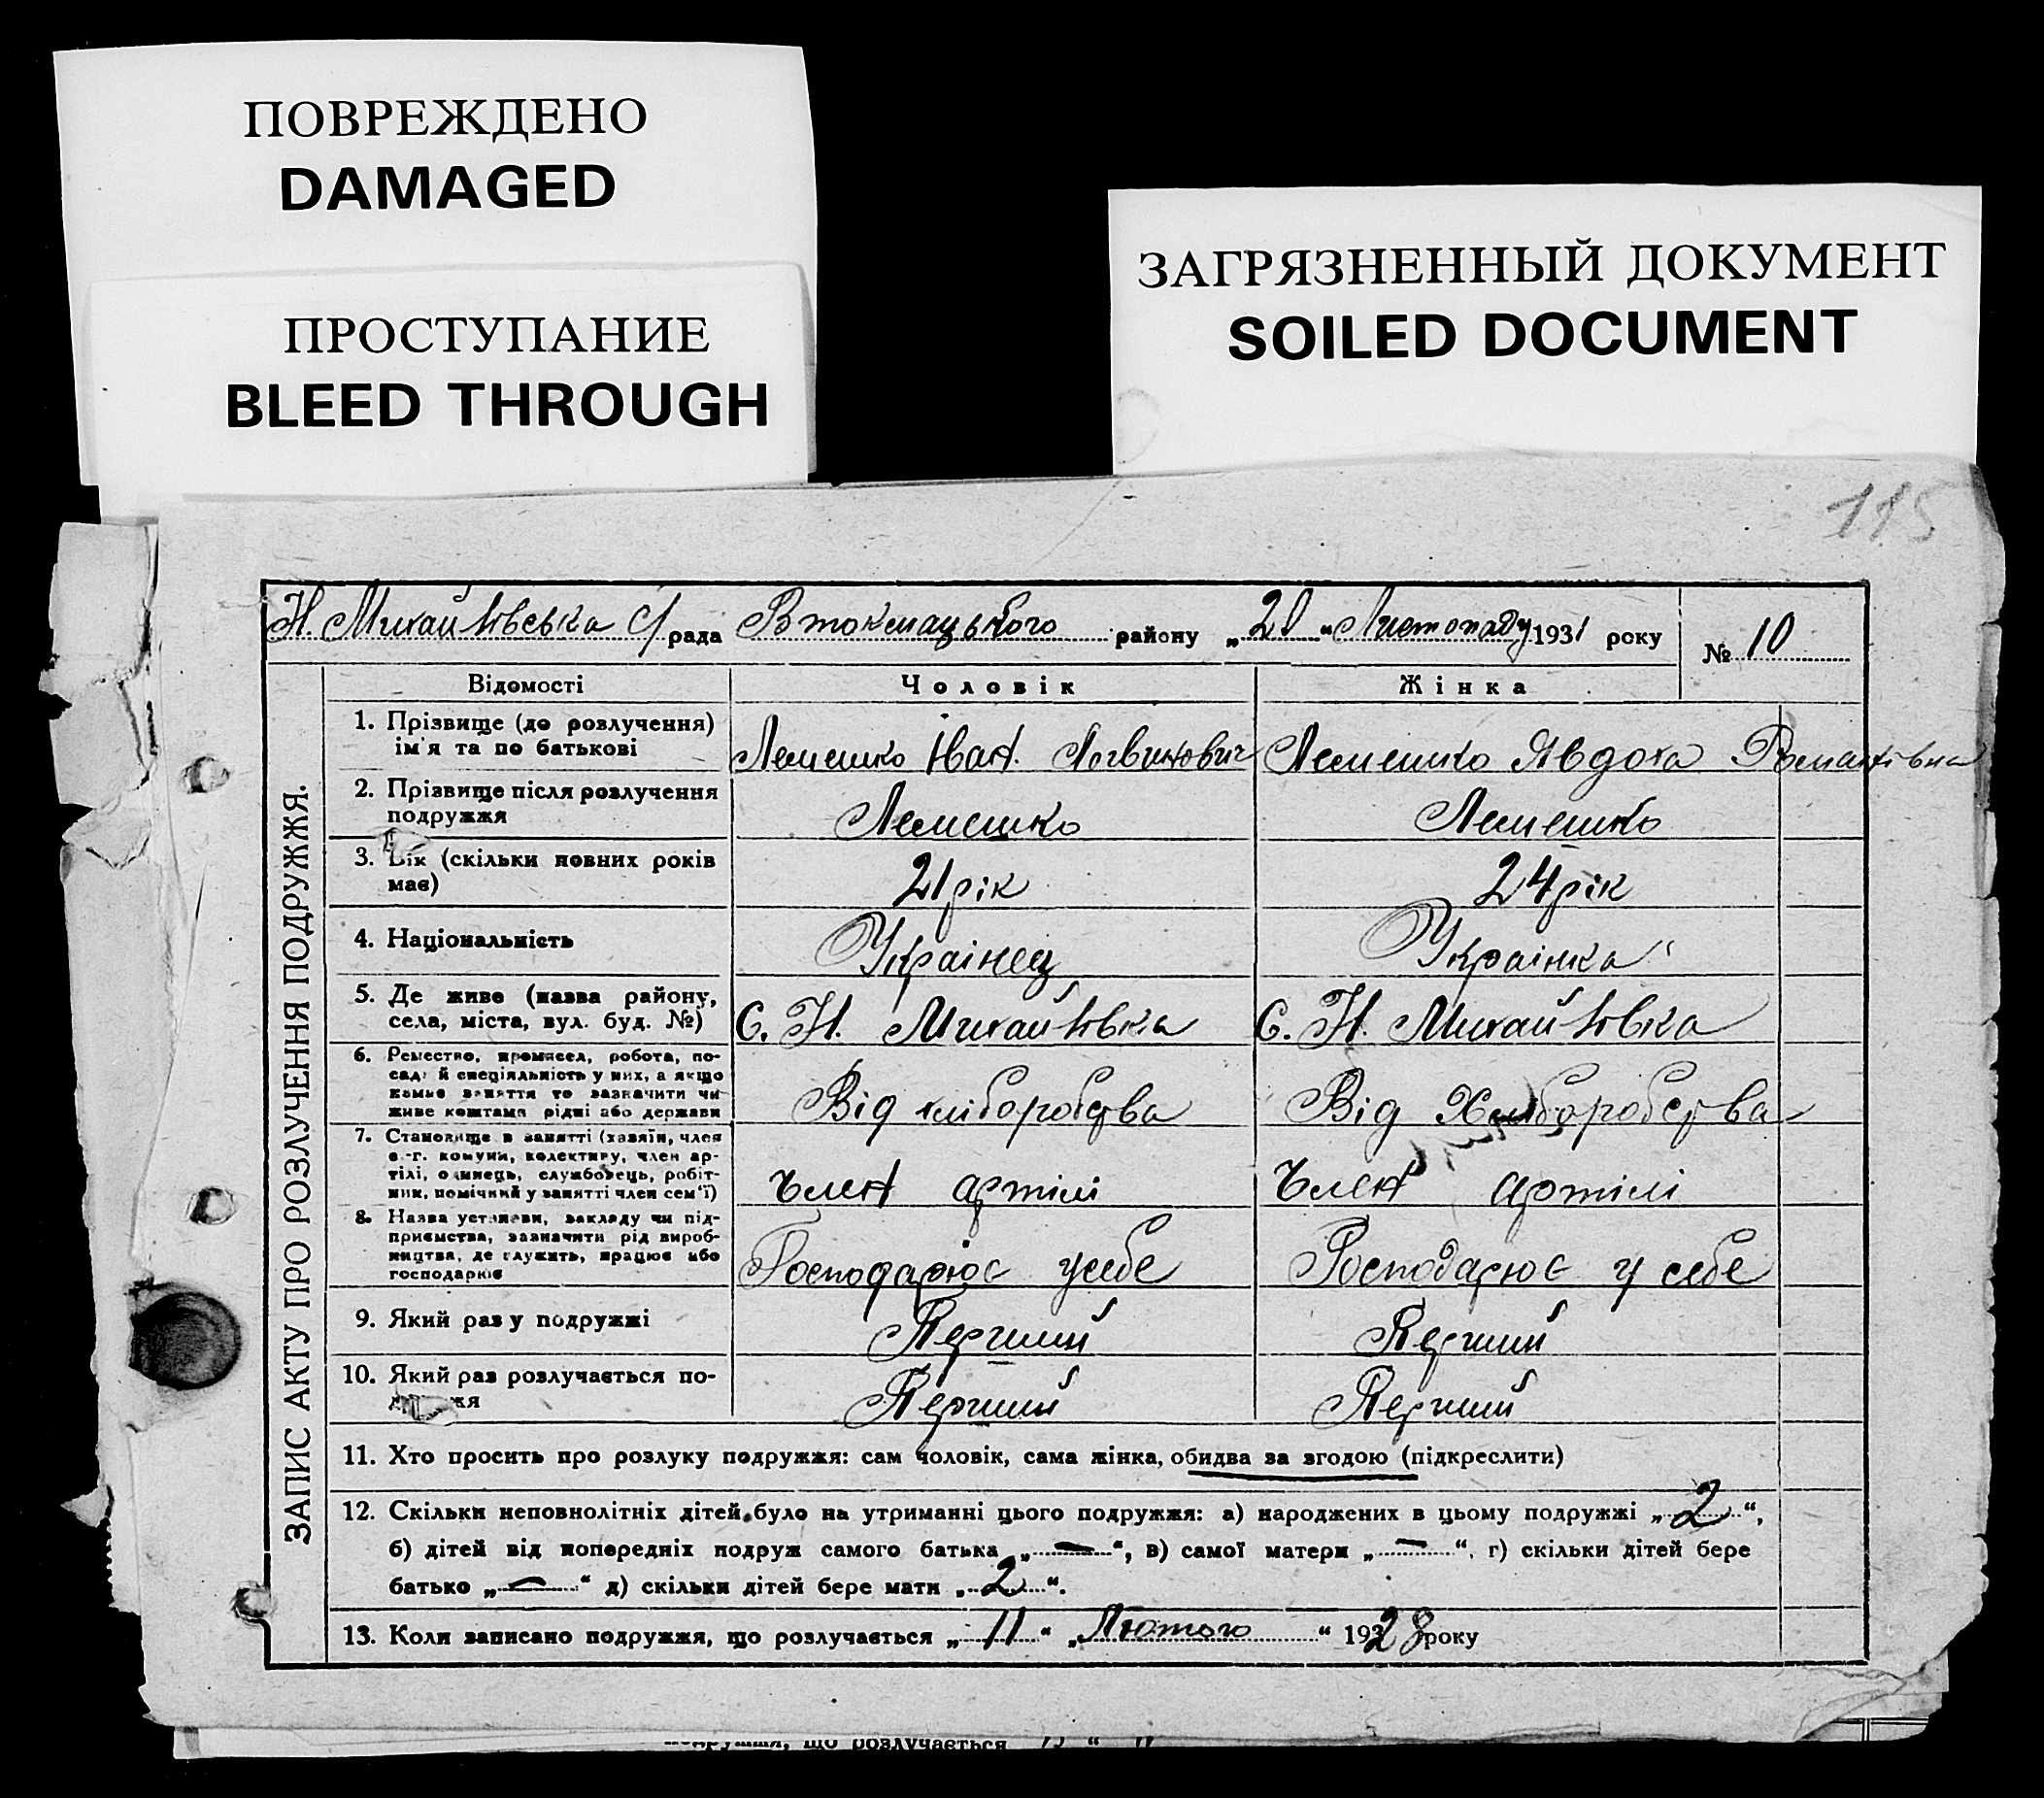 ПОВРЕЖДЕНО
DAMAGED
ПРОСТУПАНИЕ
BLEED THROUGH
ЗАГРЯЗНЕННЫЙ ДОКУМЕНТ
SOILED DOCUMENT
115
Н. Михайлівська с/рада Втокмацького району „ “ Листопаду 1931 року № 10
ЗАПИС АКТУ ПРО РОЗЛУЧЕННЯ ПОДРУЖЖЯ.
Відомості Чоловік Жінка
1. Прізвище (до розлучення)
ім'я та по батькові
Лемешко Іван. Логвинович Лемешко Явдоха Романівна
2. Прізвище після розлучення
подружжя
Лемешко Лемешко
3. Вік (скільки повних років
має)
21 рік 24 рік
4. Національність Українец Українка
5. Де живе (назва району,
села, міста, вул. буд. №)
С. Н. Михайлівка С. Н. Михайлівка
6. Ремество, промисел, робота, по-
сада й спеціяльність у них, а якщо
немає заняття то зазначити чи
живе коштами рідні або держави
Від хліборобства Від Хліборобства
7. Становище в занятті (хазяїн, член
с.-г. комуни, колективу, член ар-
тілі, одинець, службовець, робіт-
ник, помічний у занятті член сем'ї)
Член артілі Член артілі
8. Назва установи, закладу чи під-
приємства, зазначити рід вироб-
ництва, де служить, працює або
господарює
Господарює у себе Господарює у себе
9. Який раз у подружжі Перший Перший
10. Який раз розлучається по-
дружжя
Перший Перший
11. Хто просить про розлуку подружжя: сам чоловік, сама жінка, обидва за згодою (підкреслити)
12. Скільки неповнолітніх дітей було на утриманні цього подружжя: а) народжених в цьому подружжі „2“,
б) дітей від попередніх подруж самого батька „—“, в) самої матери „—“. г) скільки дітей бере
батько „—“ д) скільки дітей бере мати „2“.
13. Коли записано подружжя, що розлучається „11“ „Лютого“ 1928 року
подружжя, що розлучається